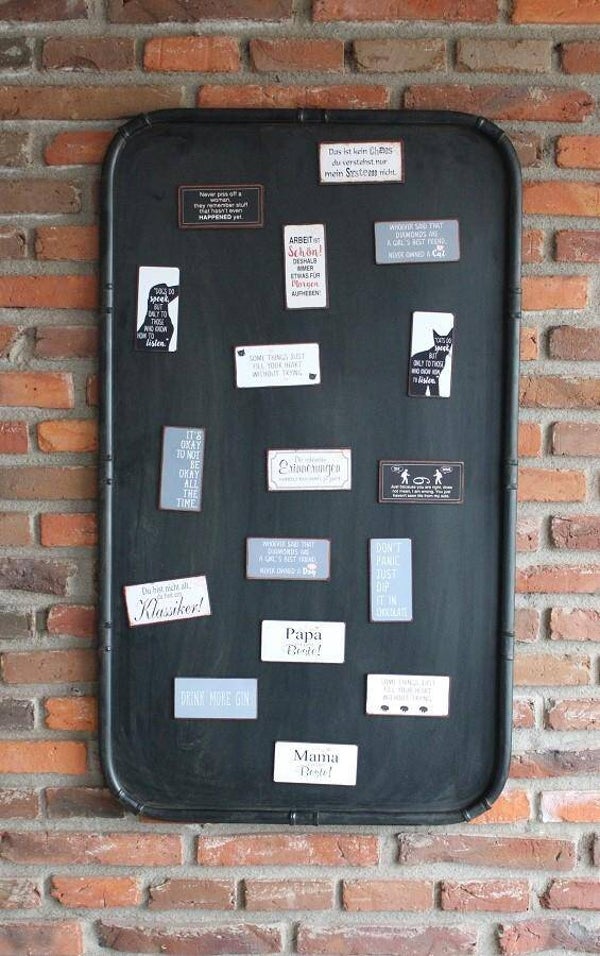 Das ist kein Chaos
du verstehst nur
mein System nicht.
Never piss off a
woman,
they remember stuff
that hasn't even
HAPPENED yet.
WHOEVER SAID THAT
DIAMONDS ARE
A GIRL'S BEST FRIEND,
NEVER OWNED A Cat
ARBEIT IST
Schön!
DESHALB
IMMER
ETWAS FÜR
Morgen
AUFHEBEN!
"DOGS DO
speak,
BUT
ONLY TO
THOSE
WHO KNOW
HOW TO
listen."
SOME THINGS JUST
FILL YOUR HEART
WITHOUT TRYING
"CATS DO
speak,
BUT
ONLY TO THOSE
WHO KNOW
HOW TO
listen."
IT'S
OKAY
TO NOT
BE
OKAY
ALL
THE
TIME.
Erinnerungen
Just because you are right, does
not mean, I am wrong. You just
haven't seen life from my side.
WHOEVER SAID THAT
DIAMONDS ARE
A GIRL'S BEST FRIEND,
NEVER OWNED A Dog
DON'T
PANIC
JUST
DIP
IT IN
CHOCOLATE
Du bist nicht alt,
du bist ein
Klassiker!
Papa
Beste!
SOME THINGS JUST
FILL YOUR HEART
WITHOUT TRYING
DRINK MORE GIN
Mama
Beste!